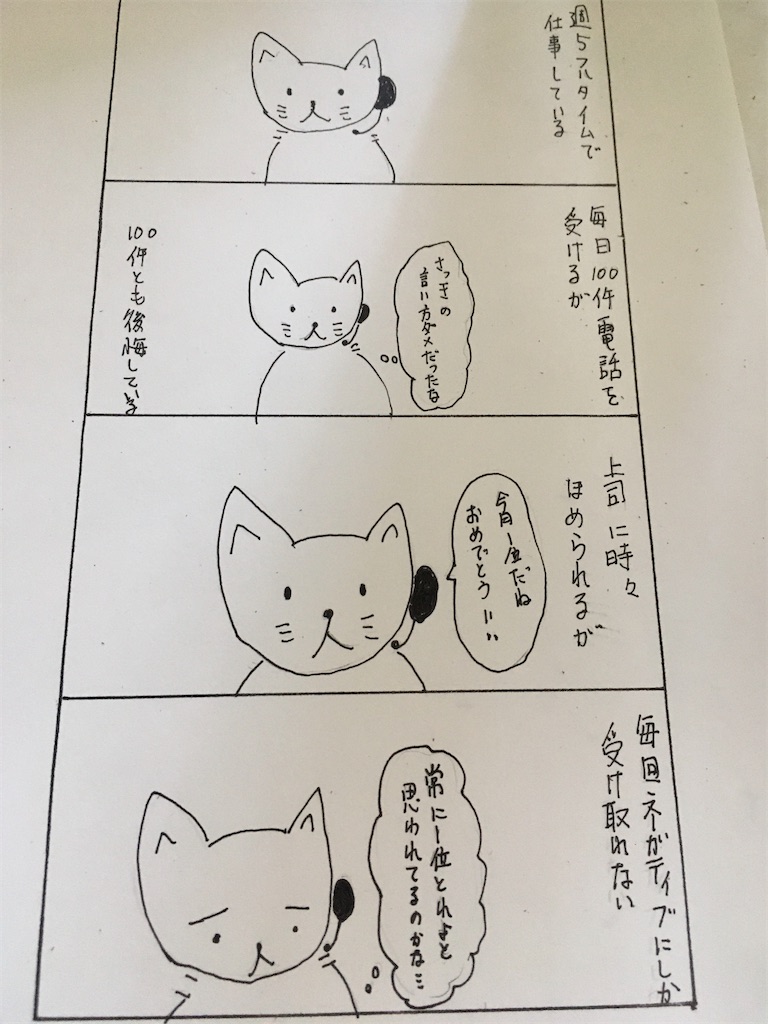 週5フルタイムで
仕事している
毎日100件電話を
受けるが
さっきの
言い方ダメだったな
100件とも後悔している
上司に時々
ほめられるが
今月1位だね
おめでとう!!
毎回ネガティブにしか
受け取れない
常に1位とれよと
思われてるのかな…